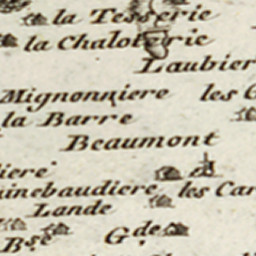 la Tesserie
la Chaloterie
Laubier
Mignonniere les
la Barre
Beaumont
iere
ainebaudiere les Car
Lande
Gde
Bse